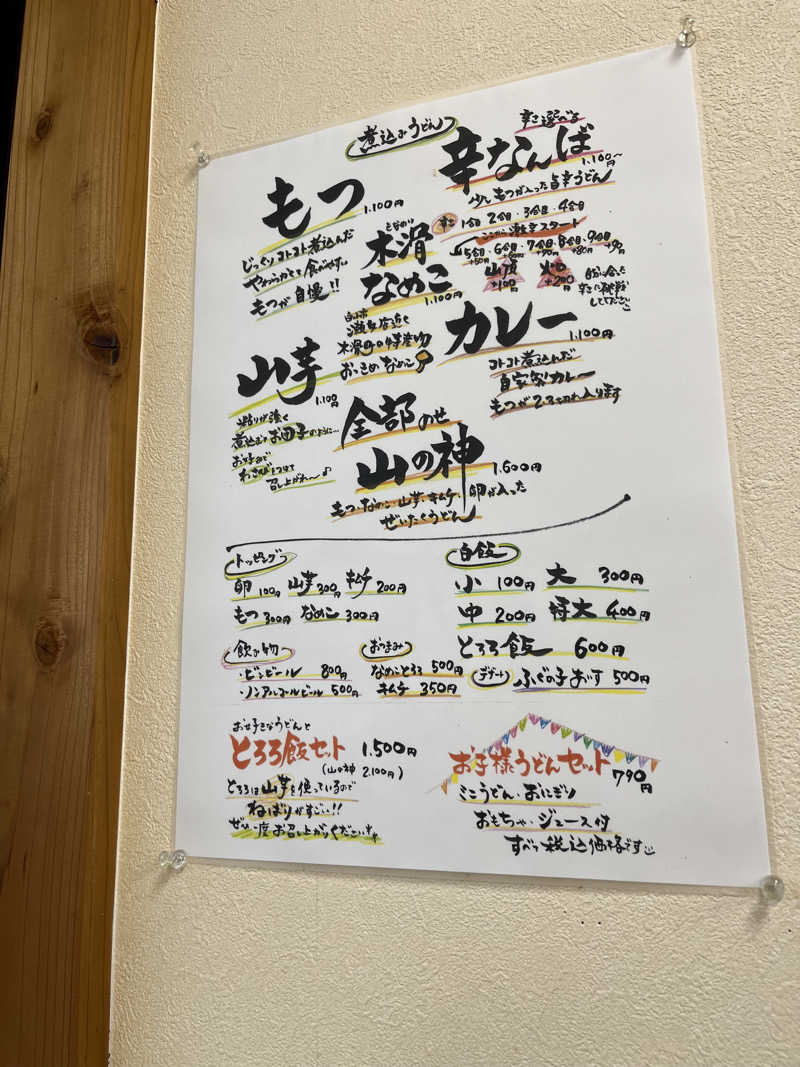 煮込みうどん
もつ 1.100円
じっくりコトコト煮込んだ
やわらかくて食べやすい
もつが自慢!!
辛さ選べる
辛なんば 1.100円〜
少しもつが入った旨辛うどん
辛さ 1合目・2合目・3合目・4合目
ここから激辛スタート
5合目・6合目・7合目・8合目・9合目
+50円 +60円 +70円 +80円 +90円
山頂 +100円
火口 +200円
自分に合った
辛さに挑戦
してください
木滑
なめこ 1.100円
白山市
瀬女店近く
木滑町の特産物
おっきめなめこ
カレー 1.100円
コトコト煮込んだ
自家製カレー
もつが2.3切れ入ります
山芋 1.100円
粘りが強く
煮込むとお団子のように…
お好みで
わさびをつけて
召し上がれ〜♪
全部のせ
山の神 1.600円
もつ・なめこ・山芋・キムチ・卵が入った
ぜいたくうどん
トッピング
卵 100円 山芋 300円 キムチ 200円
もつ 300円 なめこ 300円
白飯
小 100円 大 300円
中 200円 特大 400円
とろろ飯 600円
飲み物
・ビンビール 800円
・ノンアルコールビール 500円
おつまみ
なめことろろ 500円
キムチ 350円
デザート ふぐの子あいす 500円
お好きなうどんと
とろろ飯セット 1.500円
(山の神 2.100円)
とろろは山芋を使っているので
ねばりがすごい!!
ぜひ一度お召し上がりくださいませ
お子様うどんセット 790円
ミニうどん・おにぎり
おもちゃ・ジュース付
すべて税込価格です